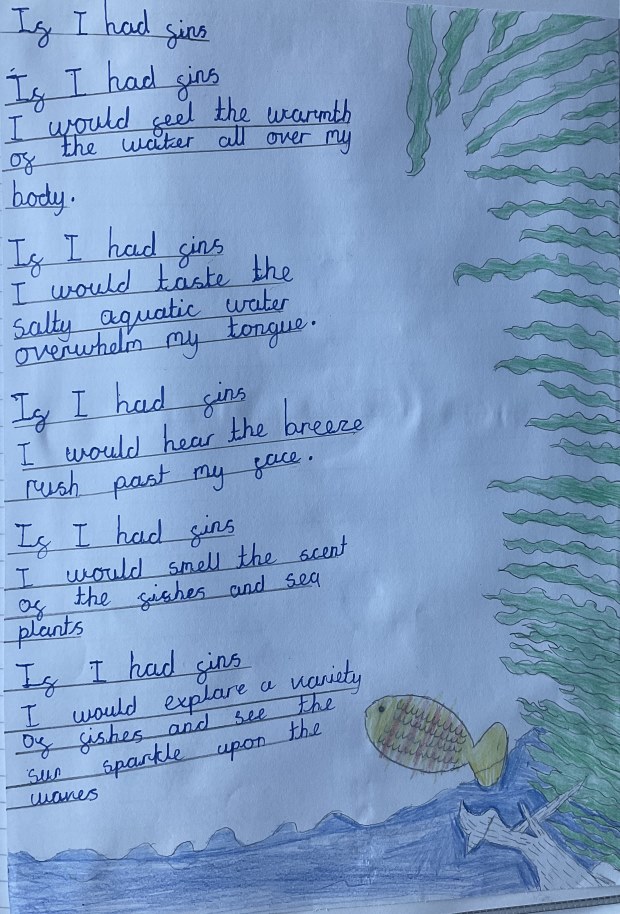 If I had fins
If I had fins
I would feel the warmth
of the water all over my
body.
If I had fins
I would taste the
salty aquatic water
overwhelm my tongue.
If I had fins
I would hear the breeze
rush past my face.
If I had fins
I would smell the scent
of the fishes and sea
plants
If I had fins
I would explore a variety
of fishes and see the
sun sparkle upon the
waves